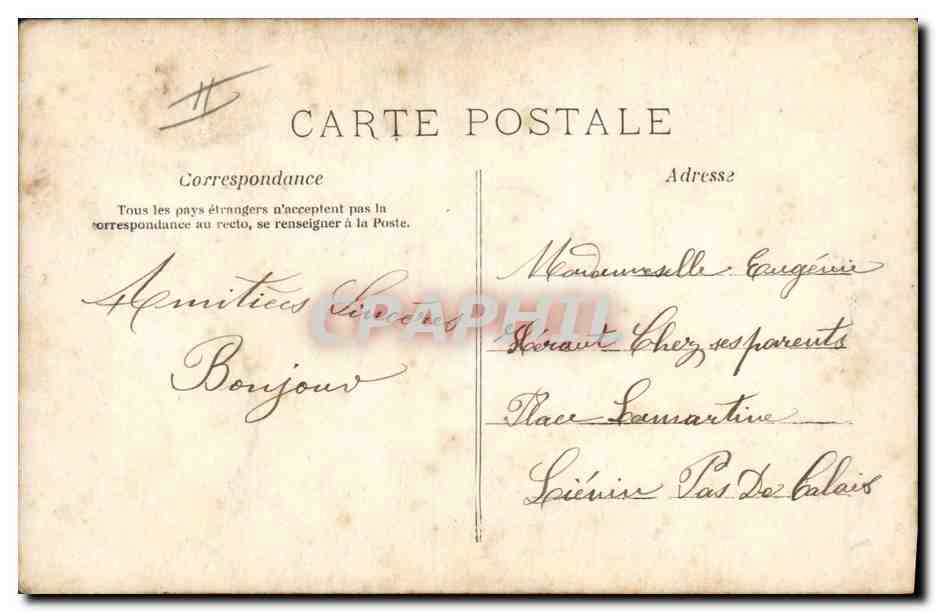 CARTE POSTALE
Correspondance
Tous les pays étrangers n'acceptent pas la
correspondance au recto, se renseigner à la Poste.
Amitiées Sincères
Bonjour
Adresse
Mademoiselle Eugénie
Héraut Chez ses parents
Place Lamartine
Liénin Pas De Calais
CPAPHIL